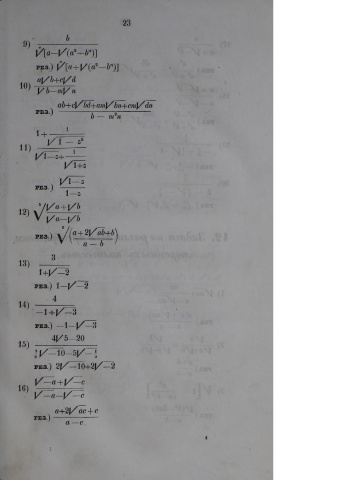 23
9) b / √[a−√(a²−bⁿ)]
рез.) √[a+√(a²−bⁿ)]
10) a√b+c√d / √b−m√n
рез.) ab+c√bd+am√bn+cm√dn / b − m²n
11) 1+ 1/√1 − z² / √1−z+ 1/√1+z
рез.) √1−z / 1−z
12) √ √a+√b / √a−√b
рез.) √( a+2√ab+b / a − b )
13) 3 / 1+√−2
рез.) 1−√−2
14) 4 / −1+√−3
рез.) −1−√−3
15) 4√5−20 / √−10−5√−
рез.) 2√−10+2√−2
16) √−a+√−c / √−a−√−c
рез.) a+2√ac+c / a − c